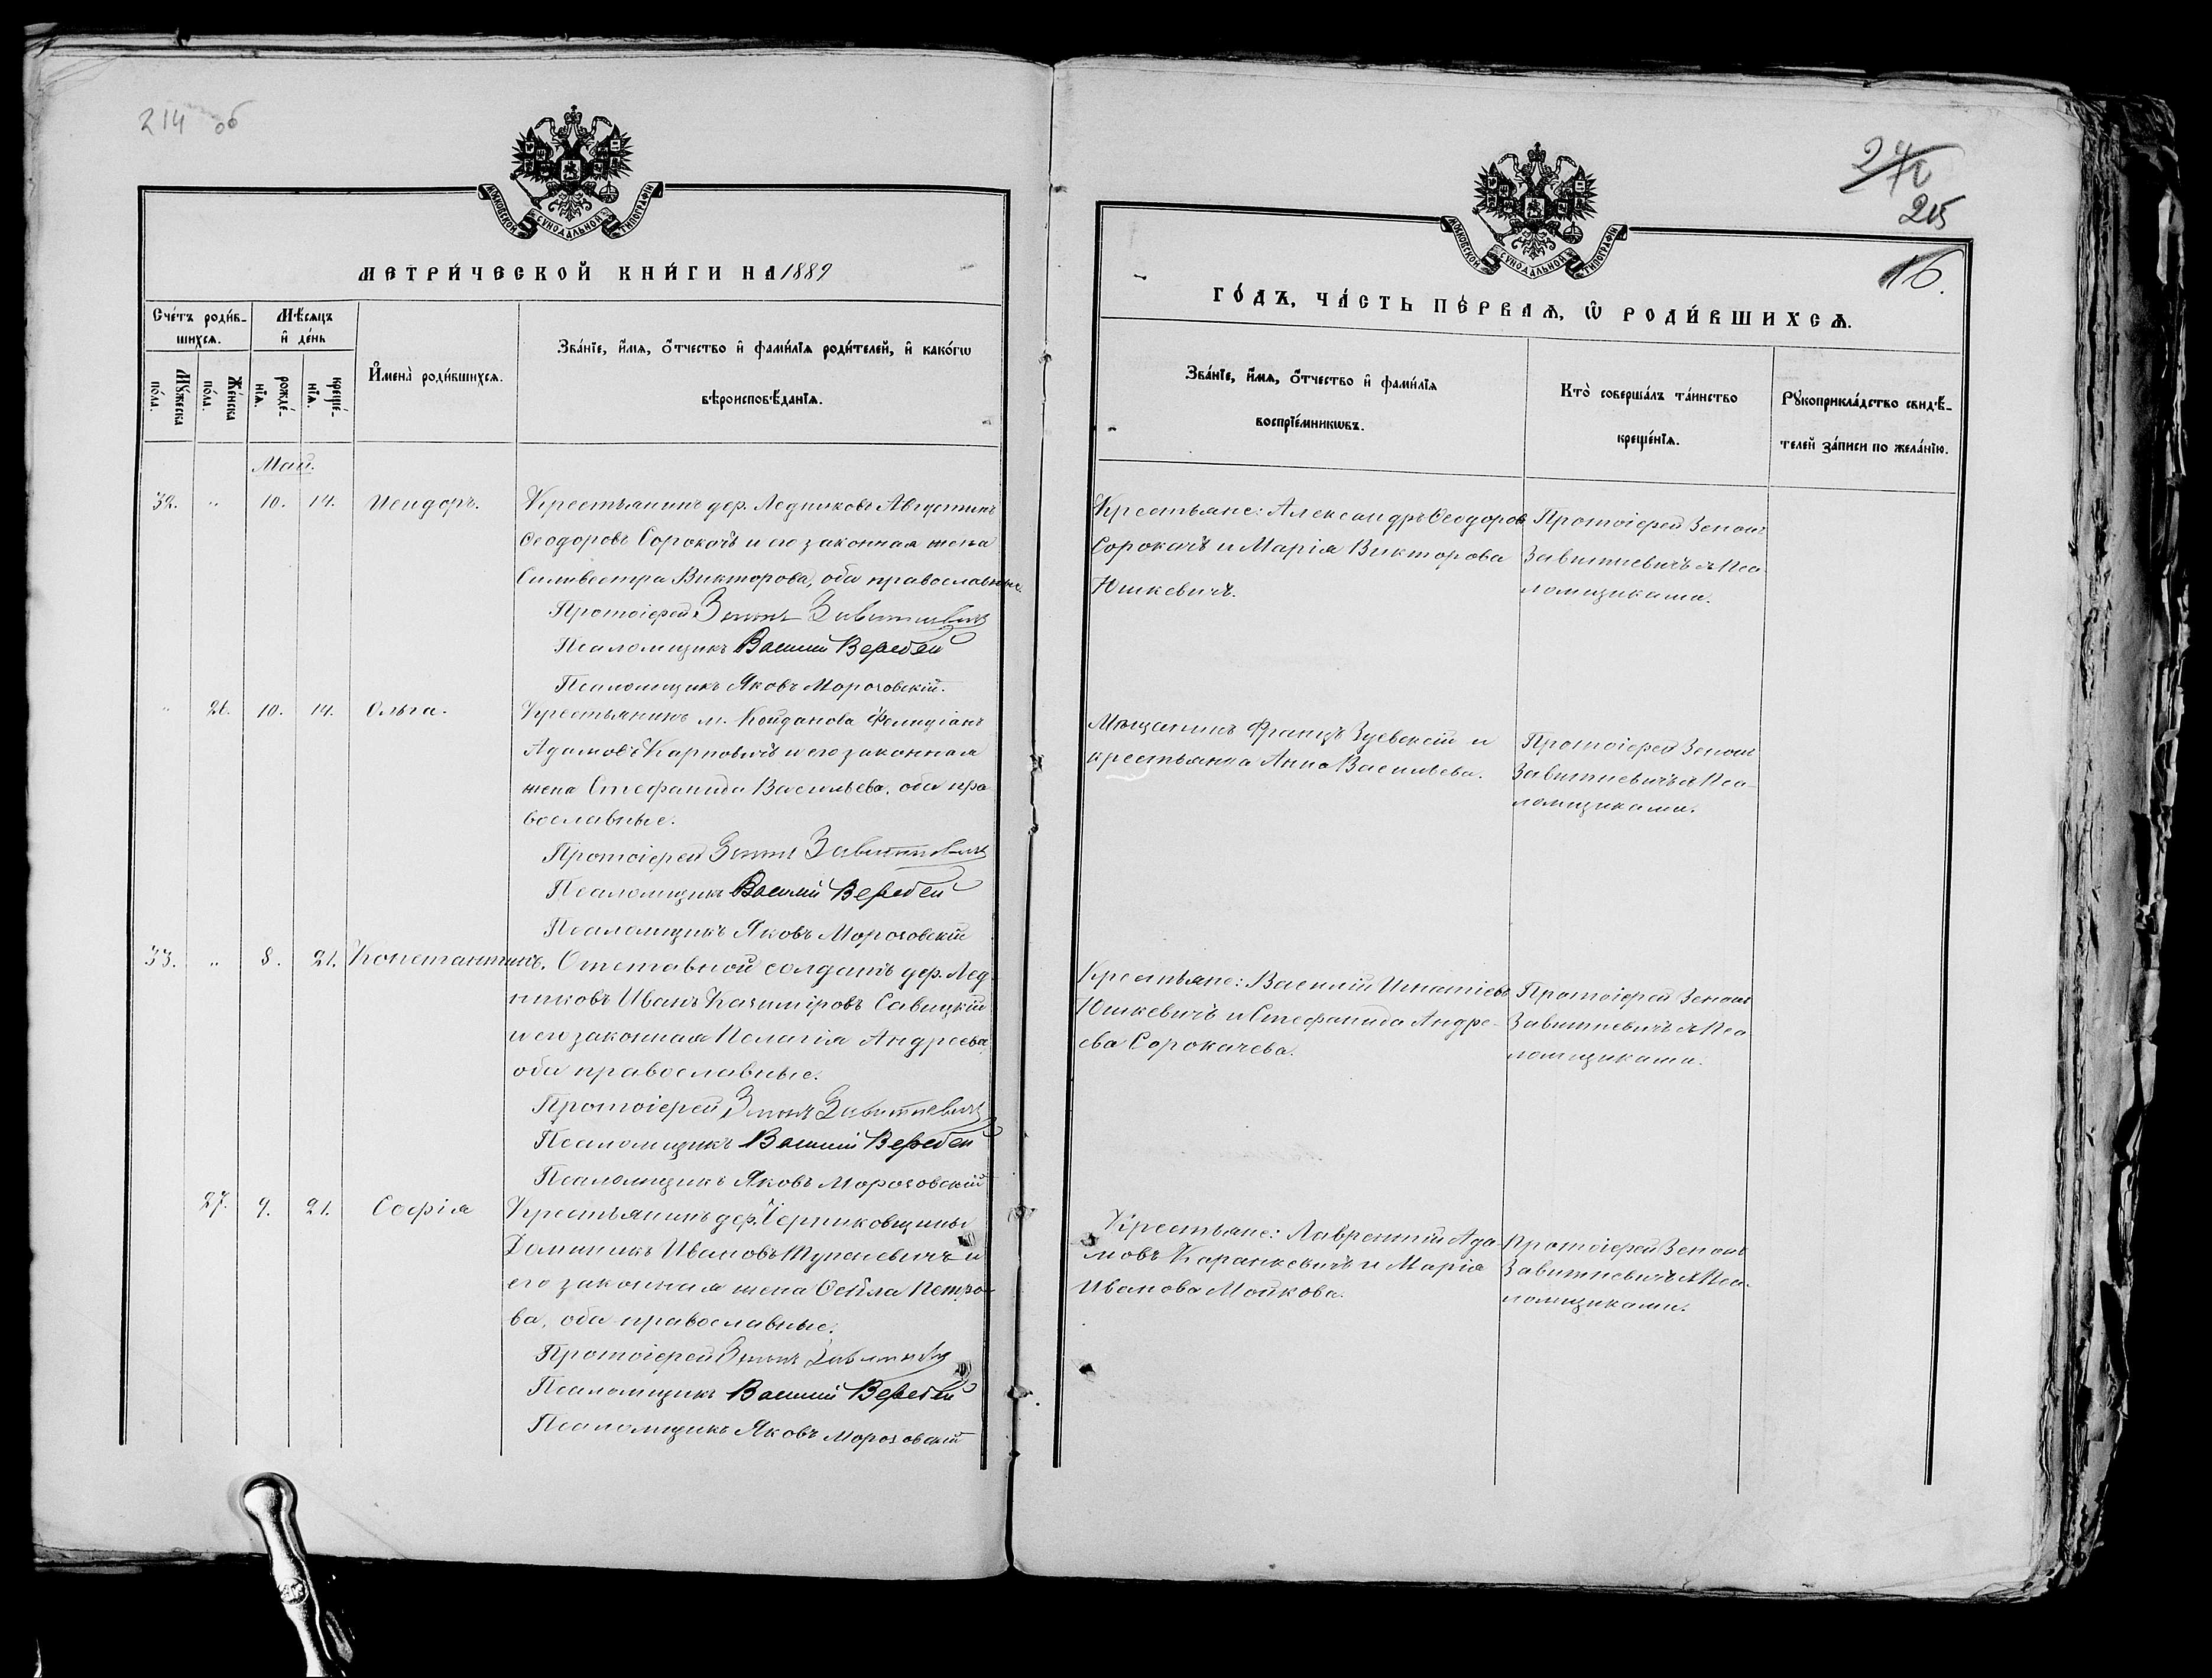 214 об
МОСКОВСКОЙ СѴНОДАЛЬНОЙ ТИПОГРАФІИ
МЕТРИ́ЧЕСКОЙ КНИ́ГИ НА 1889
Сче́тъ роди́в-
шихсѧ.
Мѣ́сѧцъ
и҆ де́нь
Мꙋ́жеска
по́ла.
Же́нска
по́ла.
рожде́-
нїѧ.
креще́-
нїѧ.
И҆мена̀ роди́вшихсѧ.
Зва́нїе, и҆́мѧ, ѻ҆́тчество и҆ фами́лїѧ роди́телей, и҆ како́гѡ
вѣроисповѣ́данїѧ.
Май.
32. „ 10. 14. Исидоръ.
Крестьянинъ дер. Ледниковъ Августинъ
Ѳеодоровъ Сорокачъ и его законная жена
Сильвестра Викторова, оба православные.
Протоіерей Зенонъ Завитневичъ
Псаломщикъ Василій Веребей
Псаломщикъ Яковъ Морозовскій.
„ 26. 10. 14. Ольга.
Крестьянинъ м. Койданова Фелиціанъ
Адамовъ Карповичъ и его законная
жена Стефанида Васильева, оба пра-
вославные.
Протоіерей Зенонъ Завитневичъ
Псаломщикъ Василій Веребей
Псаломщикъ Яковъ Морозовскій
33. „ 8. 21. Константинъ.
Отставной солдатъ дер. Лед-
никовъ Иванъ Казиміровъ Савицкій
и его законная Пелагія Андреева,
оба православные.
Протоіерей Зенонъ Завитневичъ
Псаломщикъ Василій Веребей
Псаломщикъ Яковъ Морозовскій
27. 9. 21. Софія
Крестьянинъ дер. Черниковщины
Доминикъ Ивановъ и
его законная жена Ѳекла Петро-
ва, оба православные.
Протоіерей Зенонъ Завитневичъ
Псаломщикъ Василій Веребей
Псаломщикъ Яковъ Морозовскій
215
16.
МОСКОВСКОЙ СѴНОДАЛЬНОЙ ТИПОГРАФІИ
ГО́ДЪ, ЧА́СТЬ ПЕ́РВАѦ, Ѡ҆ РОДИ́ВШИХСѦ.
Зва́нїе, и҆́мѧ, ѻ҆́тчество и҆ фами́лїѧ
воспрїе́мникѡвъ.
Кто̀ соверша́лъ та́инство
креще́нїѧ.
Рꙋкоприкла́дство свидѣ́-
телей за́писи по жела́нїю.
Крестьяне: Александръ Ѳеодоровъ
Сорокачъ и Марія Викторова
Юшкевичъ.
Протоіерей Зенонъ
Завитневичъ съ Пса-
ломщиками.
Мѣщанинъ Францъ Зуевскій и
крестьянка Анна Васильева.
Протоіерей Зенонъ
Завитневичъ съ Пса-
ломщиками.
Крестьяне: Василій Игнатіевъ
Юшкевичъ и Стефанида Андре-
ева Сорокачева.
Протоіерей Зенонъ
Завитневичъ съ Пса-
ломщиками.
Крестьяне: Лаврентій Ада-
мовъ Каранкевичъ и Марія
Иванова Мойкова.
Протоіерей Зенонъ
Завитневичъ съ Пса-
ломщиками.